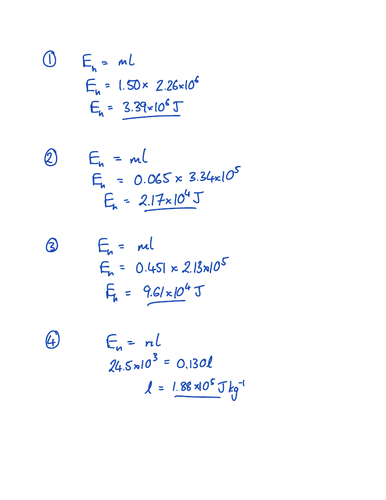 ① Eₕ = ml
Eₕ = 1.50 × 2.26×10⁶
Eₕ = 3.39×10⁶ J
② Eₕ = ml
Eₕ = 0.065 × 3.34×10⁵
Eₕ = 2.17×10⁴ J
③ Eₕ = ml
Eₕ = 0.451 × 2.13×10⁵
Eₕ = 9.61×10⁴ J
④ Eₕ = ml
24.5×10³ = 0.130l
l = 1.88×10⁵ J kg⁻¹